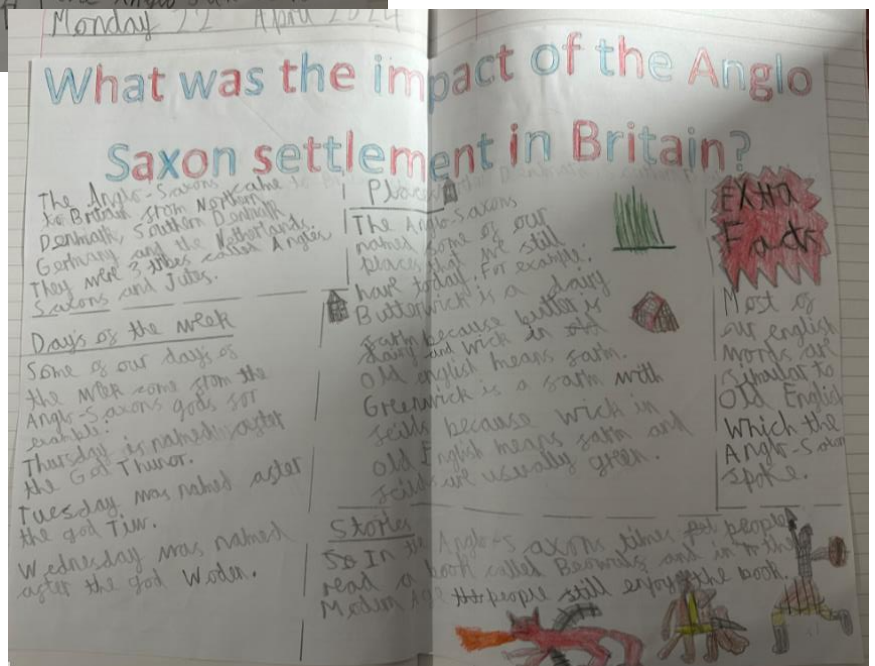 Monday 22 April 2024
What was the impact of the Anglo
Saxon settlement in Britain?
The Anglo-Saxons came to
to Britain from Northern
Denmark, Southern Denmark
Germany and the Netherlands.
They were 3 tribes called Angles
Saxons and Jutes.
Days of the week
Some of our days of
the week come from the
Anglo-Saxons gods for
example:
Thursday is named after
the God Thunor.
Tuesday was named after
the god Tiw.
Wednesday was named
after the god Woden.
The Anglo-Saxons
named some of our
places that we still
have today. For example.
Butterwick is a dairy
farm because butter is
dairy and wick in old
old english means farm.
Greenwick is a farm with
feilds because wick in
old English means farm and
feilds are usually green.
Stories
So In the Anglo-Saxons times people
read a book called and in
Modern people still enjoy the book.
Extra
Facts
Most of
our english
words are
simular to
Old English
which the
Anglo-Saxon
spoke.